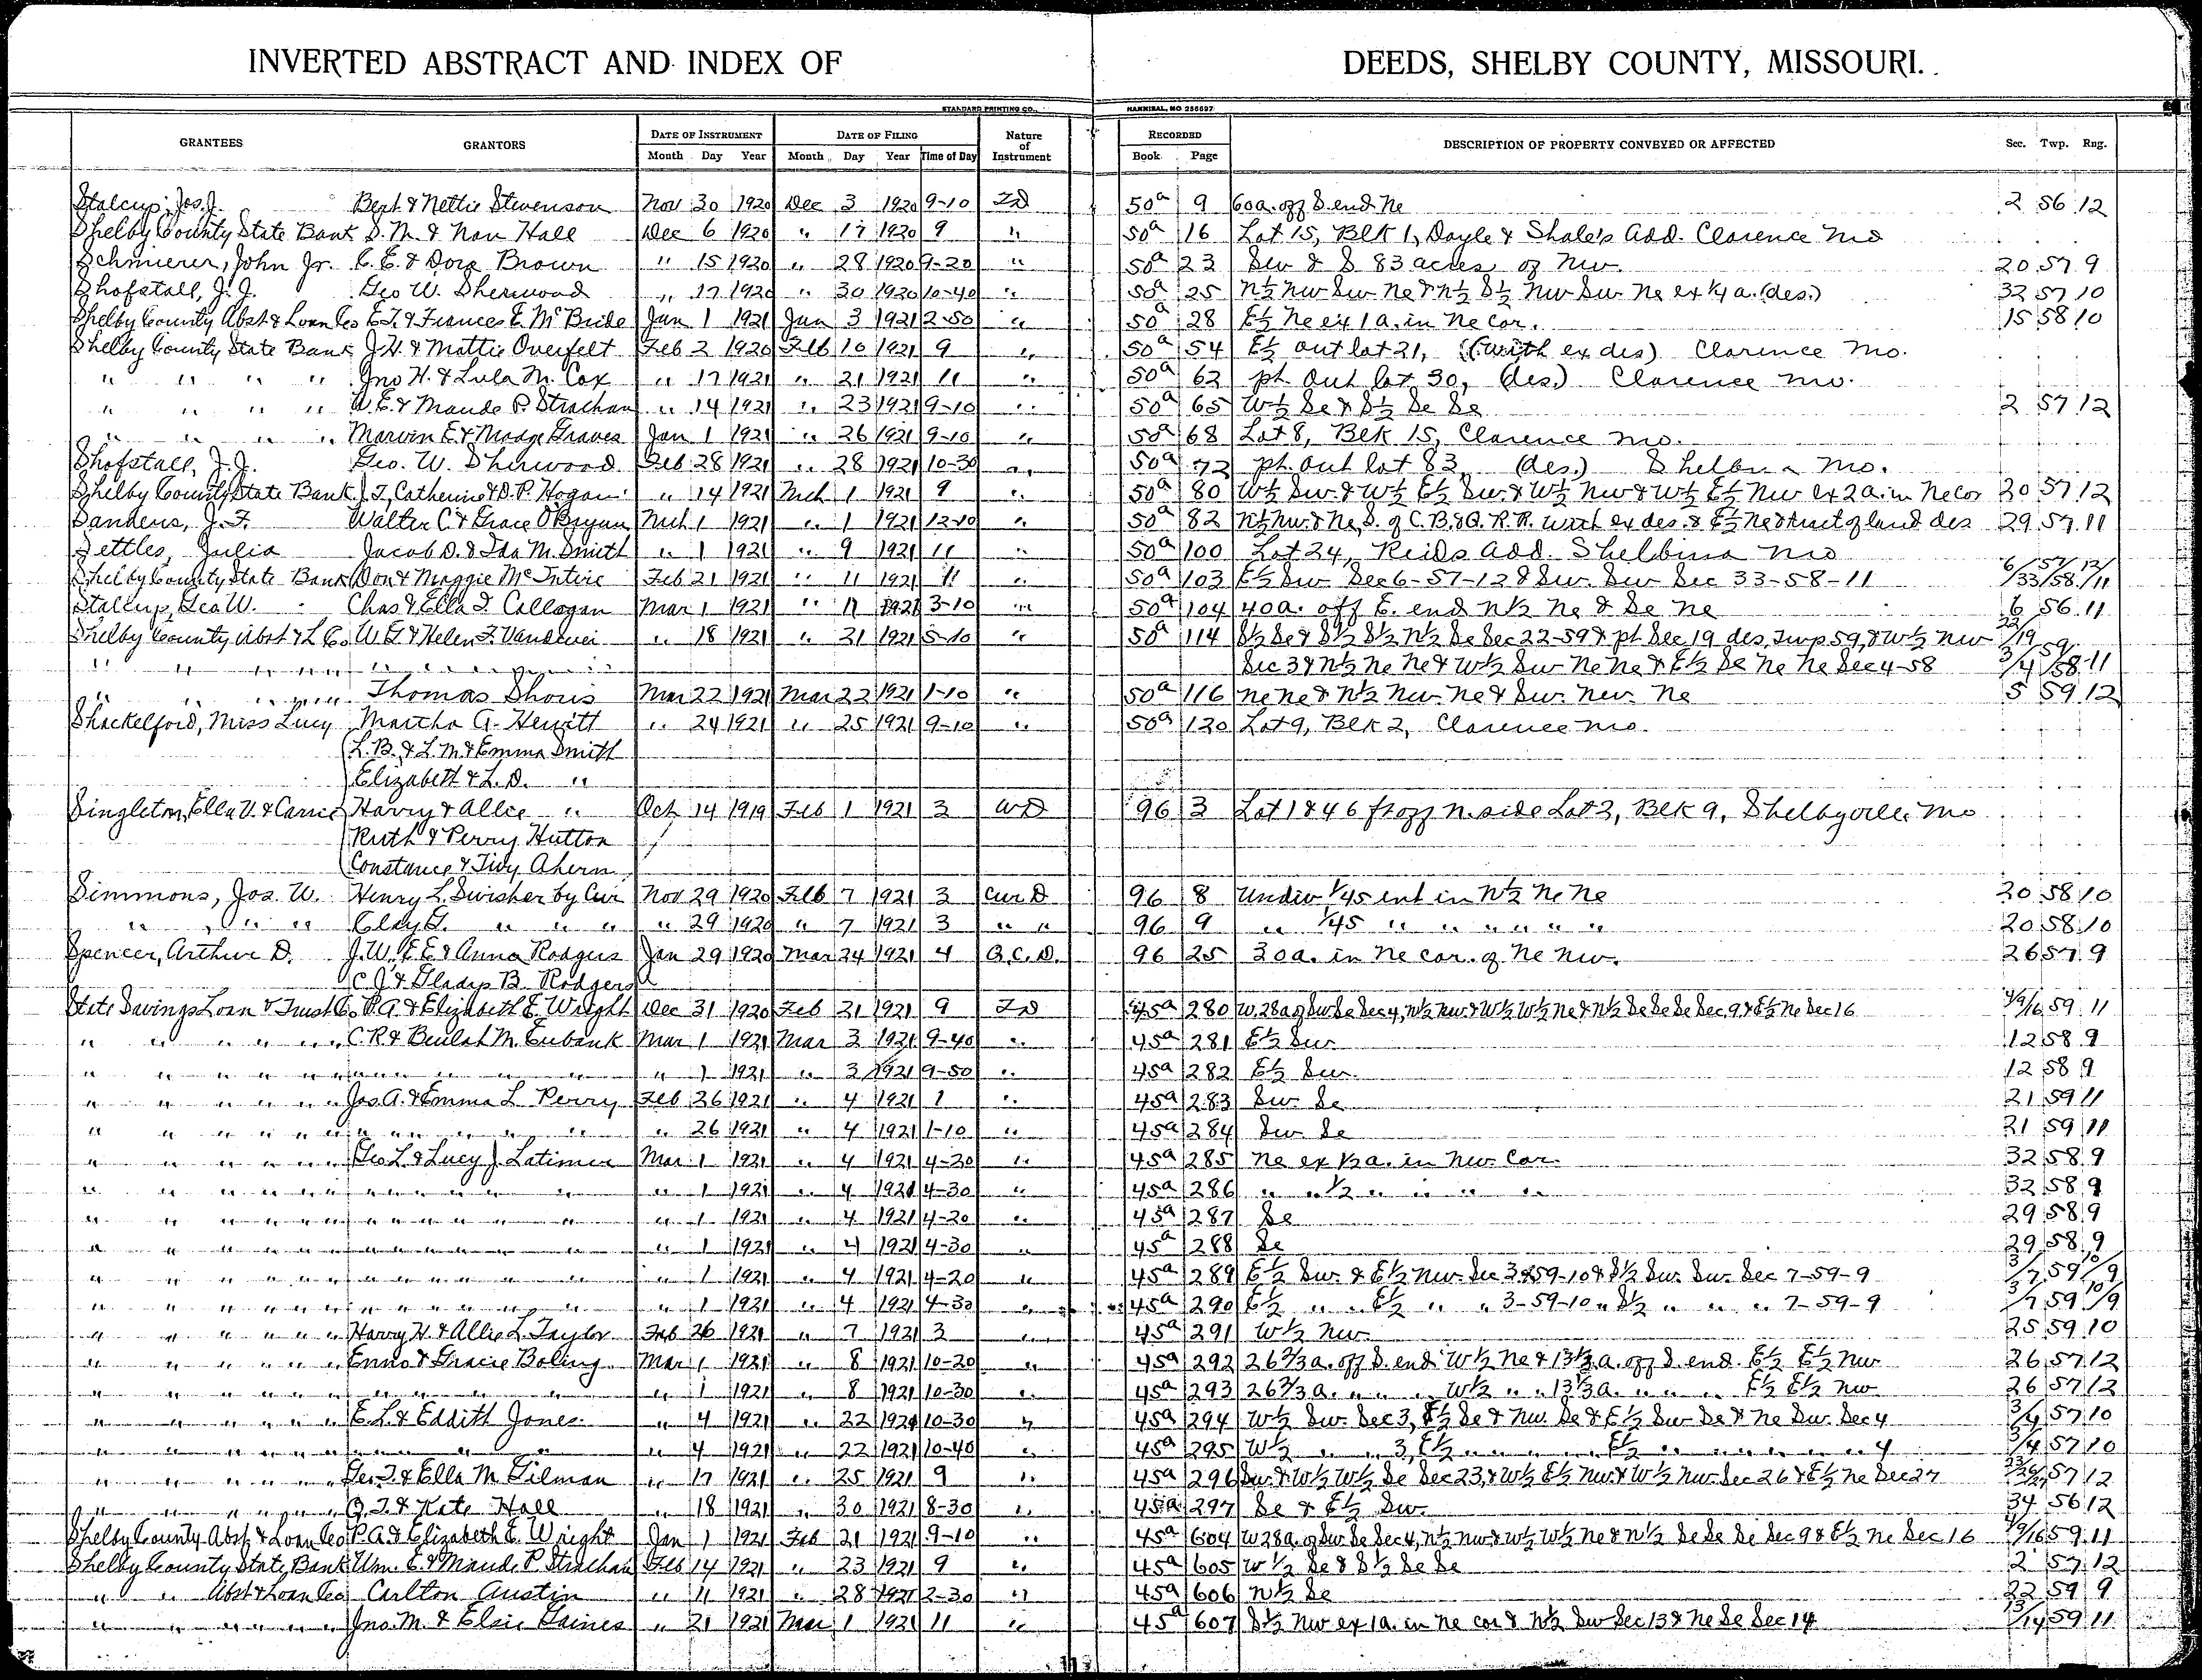 INVERTED ABSTRACT AND INDEX OF DEEDS, SHELBY COUNTY, MISSOURI.
STANDARD PRINTING CO., HANNIBAL, MO 256697
GRANTEES GRANTORS DATE OF INSTRUMENT DATE OF FILING Nature of Instrument RECORDED DESCRIPTION OF PROPERTY CONVEYED OR AFFECTED Sec. Twp. Rng.
Month Day Year Month Day Year Time of Day Book Page
Stalcup, Jos. J. Bert & Nettie Stevenson Nov 30 1920 Dec 3 1920 9-10 TD 50a 9 60a. off S. end Ne 2 56 12
Shelby County State Bank S. M. & Nan Hall Dec 6 1920 " 17 1920 9 " 50a 16 Lot 15, Blk 1, Doyle & Shale's Add. Clarence Mo
Schmierer, John Jr. C. E. & Dora Brown " 15 1920 " 28 1920 9-20 " 50a 23 Sw & S 83 acres of Nw. 20 57 9
Shofstall, J. J. Geo W. Sherwood " 17 1920 " 30 1920 10-40 " 50a 25 N½ Nw Sw Ne & N½ S½ Nw Sw Ne ex ¼ a. (des.) 32 57 10
Shelby County Abst & Loan Co E. T. & Frances E. McBride Jan 1 1921 Jan 3 1921 2-50 " 50a 28 E½ Ne ex 1a. in Ne cor. 15 58 10
Shelby County State Bank J. H. & Mattie Overfelt Feb 2 1920 Feb 10 1921 9 " 50a 54 E½ out lot 21, (with ex des) Clarence Mo.
" " " " Jno H. & Lula M. Cox " 17 1921 " 21 1921 11 " 50a 62 pt. out lot 30, (des.) Clarence Mo.
" " " " W. E. & Maude P. Strachan " 14 1921 " 23 1921 9-10 " 50a 65 W½ Se & S½ Se Se 2 57 12
" " " " Marvin E. & Madge Graves Jan 1 1921 " 26 1921 9-10 " 50a 68 Lot 8, Blk 15, Clarence Mo.
Shofstall, J. J. Geo. W. Sherwood Feb 28 1921 " 28 1921 10-30 " 50a 72 pt. out lot 83, (des.) Shelbina Mo.
Shelby County State Bank J. T, Catherine & D. P. Hogan " 14 1921 Mch 1 1921 9 " 50a 80 W½ Sw. & W½ E½ Sw. & W½ Nw & W½ E½ Nw ex 2a. in Ne cor 20 57 12
Sanders, J. F. Walter C. & Grace O'Bryan Mch 1 1921 " 1 1921 12-10 " 50a 82 N½ Nw. & Ne, S. of C. B. & Q. R. R. with ex des. & E½ Ne & tract of land des 29 57 11
Settles, Julia Jacob D. & Ida M. Smith " 1 1921 " 9 1921 11 " 50a 100 Lot 24, Reids Add. Shelbina Mo
Shelby County State Bank Don & Maggie McIntire Feb 21 1921 " 11 1921 11 " 50a 103 E½ Sw Sec 6-57-12 & Sw. Sw Sec 33-58-11 6/33 57/58 12/11
Stalcup, Geo W. Chas & Ella I. Collogan Mar 1 1921 " 17 1921 3-10 " 50a 104 40a. off E. end N½ Ne & Se Ne 6 56 11
Shelby County Abst & L. Co W. G. & Helen F. Vandivei " 18 1921 " 21 1921 5-10 " 50a 114 S½ Se & S½ S½ N½ Se Sec 22-59 & pt Sec 19 des, Twp 59, & W½ Nw 22/19
" " " " " " " " Sec 3 & N½ Ne Ne & W½ Sw Ne Ne & E½ Se Ne Ne Sec 4-58 3/4 59/58 11
" " " " Thomas Shois Mar 22 1921 Mar 22 1921 1-10 " 50a 116 Ne Ne & N½ Nw. Ne & Sw. Nw. Ne 5 59 12
Shackelford, Miss Lucy Martha A. Hewitt " 24 1921 " 25 1921 9-10 " 50a 120 Lot 9, Blk 2, Clarence Mo.
L. B. & L. M. & Emma Smith
Elizabeth & L. D. "
Singleton, Ella V. & Carrie Harry & Allie " Oct 14 1919 Feb 1 1921 3 WD 96 3 Lot 1 & 46 ft off N. side Lot 2, Blk 9, Shelbyville Mo
Ruth & Perry Hutton
Constance & Tivy Ahern
Simmons, Jos. W. Henry L. Swisher by Cur Nov 29 1920 Feb 7 1921 3 Cur D 96 8 Undiv 1/45 int in N½ Ne Ne 20 58 10
" " " Clay G. " " " " 29 1920 " 7 1921 3 " " 96 9 " 1/45 " " " " " 20 58 10
Spencer, Arthur D. J. W., E. E. & Anna Rodgers Jan 29 1920 Mar 24 1921 4 Q. C. D. 96 25 30a. in Ne cor. of Ne Nw. 26 57 9
C. J. & Gladys B. Rodgers
State Savings Loan & Trust Co. P. A. & Elizabeth E. Wright Dec 31 1920 Feb 21 1921 9 TD 45a 280 W. 28a of Sw Se Sec 4, N½ Nw. & W½ W½ Ne & N½ Se Se Se Sec. 9 & E½ Ne Sec 16 4/9/16 59 11
" " " " " C. R. & Beulah M. Eubank Mar 1 1921 Mar 3 1921 9-40 " 45a 281 E½ Sw 12 58 9
" " " " " " " " " " 1 1921 " 3 1921 9-50 " 45a 282 E½ Sw. 12 58 9
" " " " " Jas. A. & Emma L. Perry Feb 26 1921 " 4 1921 1 " 45a 283 Sw. Se 21 59 11
" " " " " " " " " " 26 1921 " 4 1921 1-10 " 45a 284 Sw. Se 21 59 11
" " " " " Geo L. & Lucy J. Latimer Mar 1 1921 " 4 1921 4-20 " 45a 285 Ne ex ½ a. in Nw. Cor. 32 58 9
" " " " " " " " " " 1 1921 " 4 1921 4-30 " 45a 286 " " ½ " " " " 32 58 9
" " " " " " " " " " 1 1921 " 4 1921 4-20 " 45a 287 Se 29 58 9
" " " " " " " " " " 1 1921 " 4 1921 4-30 " 45a 288 Se 29 58 9
" " " " " " " " " " 1 1921 " 4 1921 4-20 " 45a 289 E½ Sw. & E½ Nw. Sec 3-59-10 & S½ Sw. Sw. Sec 7-59-9 3/7 59 10/9
" " " " " " " " " " 1 1921 " 4 1921 4-30 " 45a 290 E½ " " E½ " " 3-59-10 " S½ " " " 7-59-9 3/7 59 10/9
" " " " " Harry H. & Allie L. Taylor Feb 26 1921 " 7 1921 3 " 45a 291 W½ Nw. 25 59 10
" " " " " Enno & Gracie Boling Mar 1 1921 " 8 1921 10-20 " 45a 292 26⅔ a. off S. end W½ Ne & 13⅓ a. off S. end E½ E½ Nw 26 57 12
" " " " " " " " " " 1 1921 " 8 1921 10-30 " 45a 293 26⅔ a. " " " W½ " " 13⅓ a. " " " E½ E½ Nw 26 57 12
" " " " " E. L. & Eddith Jones " 4 1921 " 22 1921 10-30 " 45a 294 W½ Sw. Sec 3, E½ Se & Nw. Se & E½ Sw Se & Ne Sw. Sec 4 3/4 57 10
" " " " " " " " " " 4 1921 " 22 1921 10-40 " 45a 295 W½ " " 3, E½ " " " " " E½ " " " " " " 4 3/4 57 10
" " " " " Geo. T. & Ella M. Gilman " 17 1921 " 25 1921 9 " 45a 296 Sw. & W½ W½ Se Sec 23, & W½ E½ Nw. & W½ Nw. Sec 26 & E½ Ne Sec 27 23/26/27 57 12
" " " " " O. T. & Kate Hall " 18 1921 " 30 1921 8-30 " 45a 297 Se & E½ Sw. 34 56 12
Shelby County Abst & Loan Co P. A. & Elizabeth E. Wright Jan 1 1921 Feb 21 1921 9-10 " 45a 604 W 28a. of Sw Se Sec 4, N½ Nw & W½ W½ Ne & N½ Se Se Se Sec 9 & E½ Ne Sec 16 4/9/16 59 11
Shelby County State Bank Wm. E. & Maude P. Strachan Feb 14 1921 " 23 1921 9 " 45a 605 W½ Se & S½ Se Se 2 57 12
" " Abst & Loan Co Carlton Austin " 11 1921 " 28 1921 2-30 " 45a 606 N½ Se 22 59 9
" " " " " Jno. M. & Elsie Gaines " 21 1921 Mar 1 1921 11 " 45a 607 S½ Nw ex 1a. in Ne cor & N½ Sw Sec 13 & Ne Se Sec 14 13/14 59 11